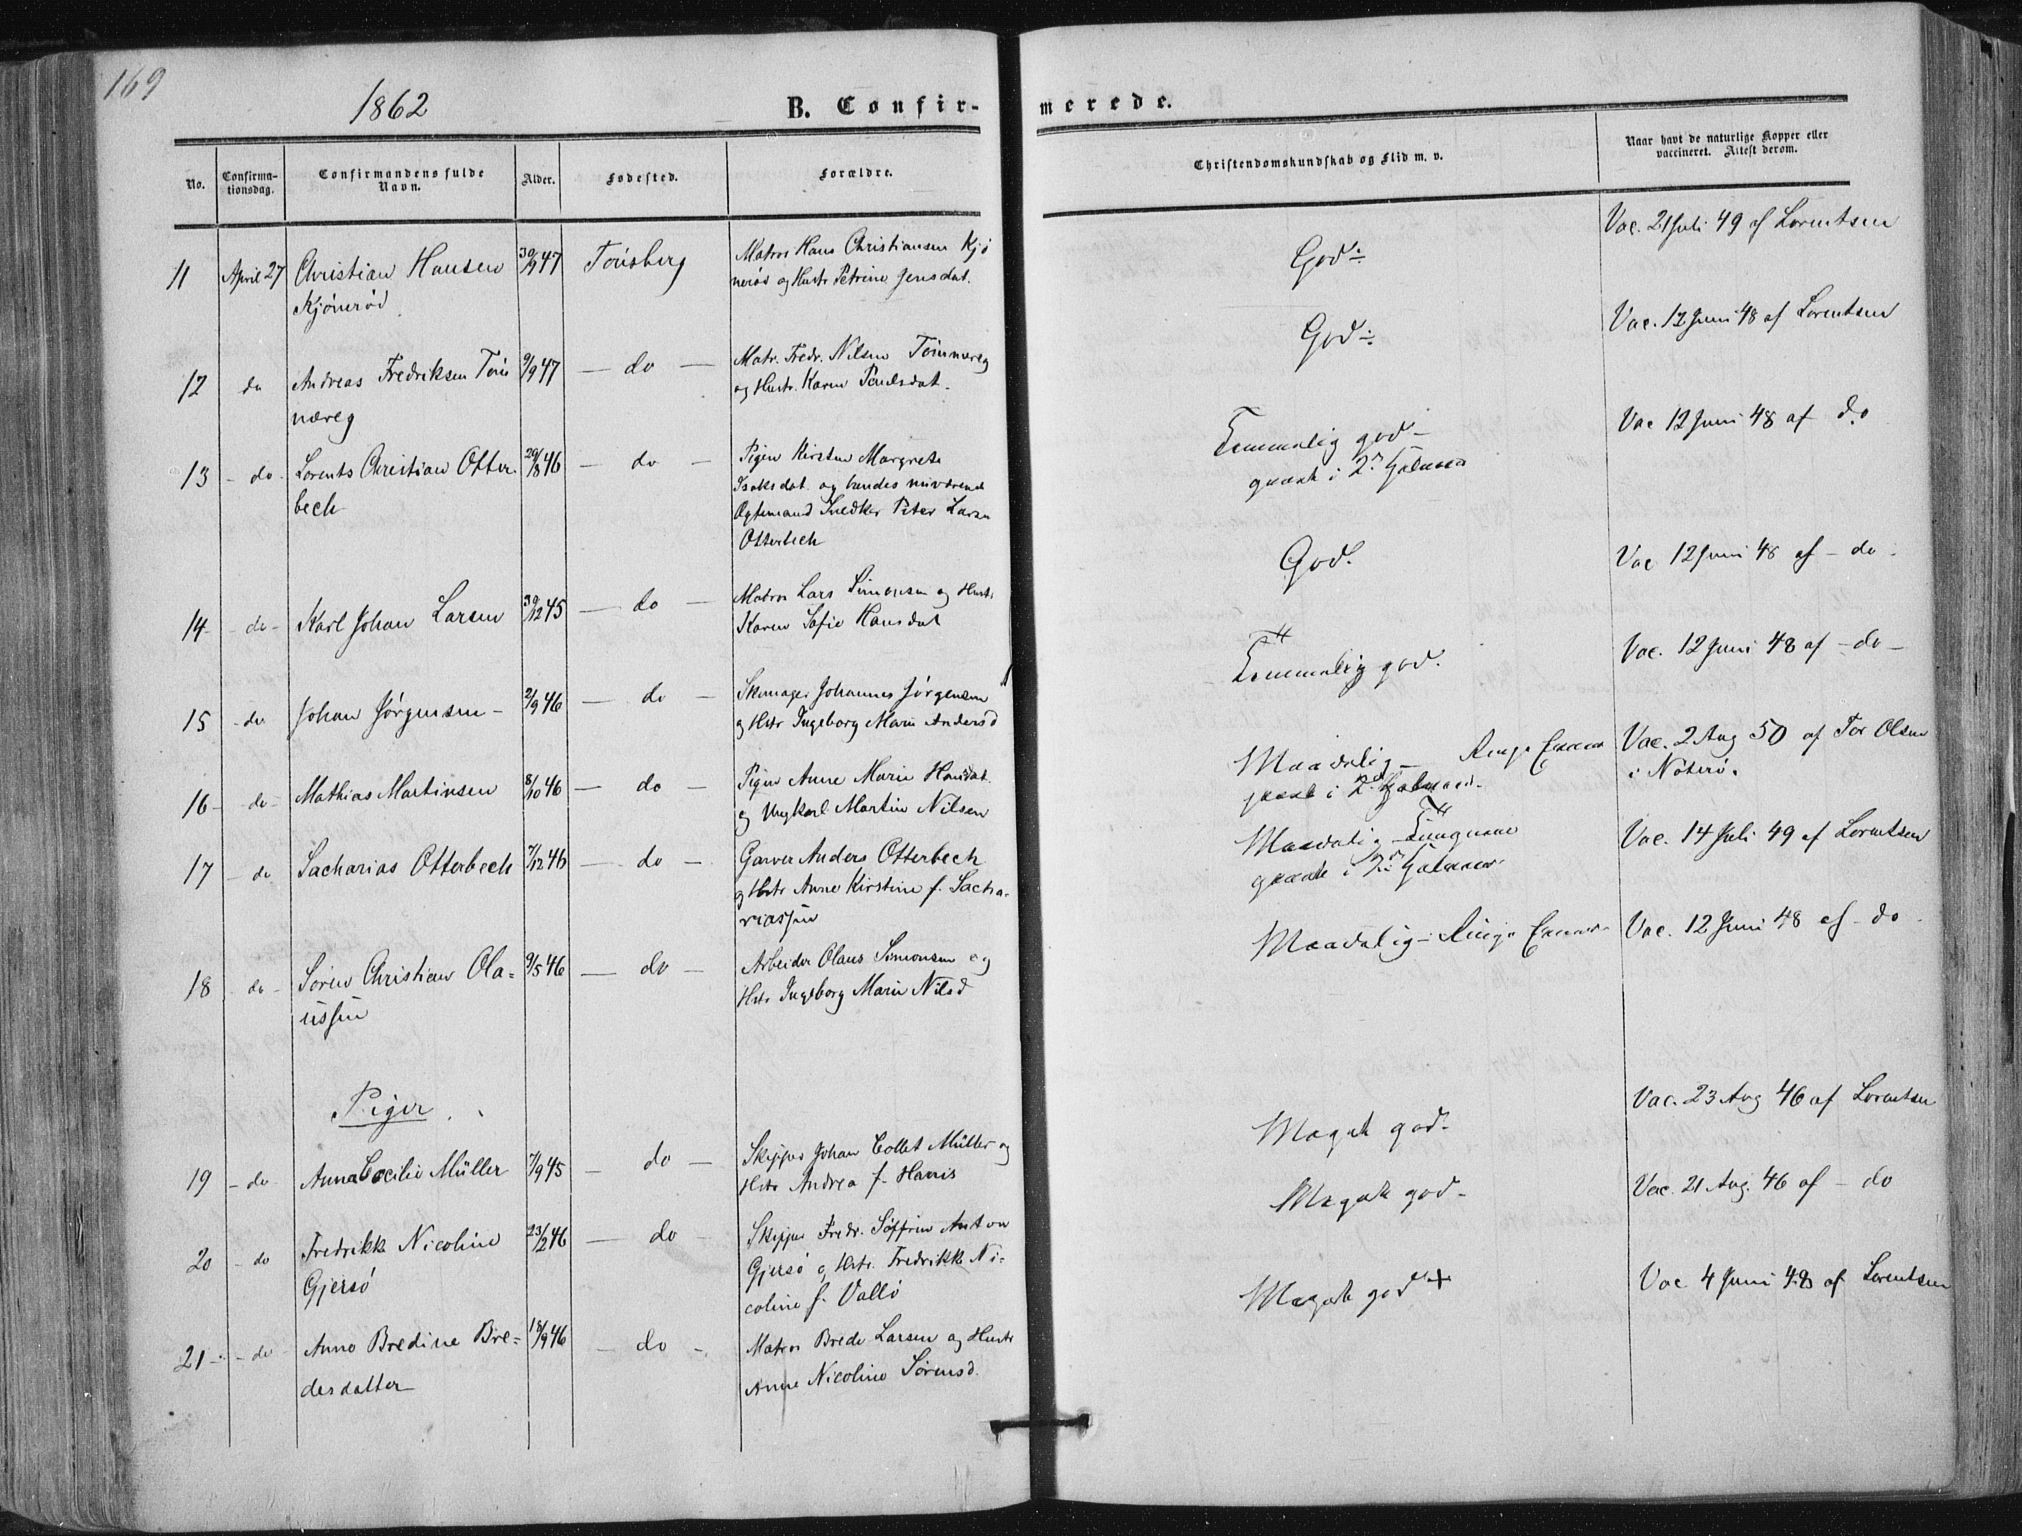 169
1862
B. Confir-
merede.
No.
Confirma-
tionsdag.
Confirmandens fulde
Navn.
Alder.
Fødested.
Forældre.
Christendomskundskab og Flid m. v.
Naar havt de naturlige Kopper eller
vaccineret. Attest derom.
11 April 27 Christian Hansen 30/9 47 Tønsberg Matros Hans Christiansen Kjø God Vac. 21 Juli 49 af Lorentsen
Kjønerød nerød og Hustr Petrine Jensdat.
12 do Andreas Fredriksen Tøn 9/9 47 — do — Matr. Fredr. Nilsen Tønnæreg God Vac. 12 Juni 48 af Lorentsen
næreg og Hustr. Karen Poulsdat.
13 - do Lorents Christian Otter- 29/8 46 — do — Pigen Kirsten Margrete Temmelig god - Vac 12 Juni 48 af do
bech Isaksdat. og hendes nuværende i 2
Ægtemand Snedker Peter Larsen
Otterbech
14 - do - Karl Johan Larsen 30/12 45 — do — Matros Lars Simonsen og Hustr God. Vac 12 Juni 48 af - do -
Karen Sofie Hansdat
15 - do Johan Jørgensen - 2/9 46 — do — Skomager Johannes Jørgensen Temmelig god. Vac. 12 Juni 48 af - do -
og Hstr Ingeborg Marie Andersd
16 - do - Mathias Martinsen 8/10 46 — do — Pigen Anne Marie Hansdat. Maadelig - Ringe Vac. 2 Aug 50 af Tor Olsen
og Ungkarl Martin Nilsen i 2 i Nøterø.
17 - do Sacharias Otterbech 7/12 46 — do — Garver Anders Otterbech Maadelig Vac. 14 Juli 49 af Lorentsen
og Hstr Anne Kirstine f. Sacha- i 2
riassen
18 - do - Søren Christian Ola- 9/5 46 — do — Arbeider Olaus Simonsen og Maadelig - Ringe Vac. 12 Juni 48 af - do
ussen Hstr Ingeborg Marie Nilsd
Piger
19 - do Anna Cecilie Müller 7/9 45 — do — Skipper Johan Collet Müller og Meget god - Vac. 23 Aug 46 af Lorentsen
Hstr Andrea f. Hanis
20 - do Fredrikke Nicoline 23/2 46 — do — Skipper Fredr. Søffrin Anton Meget god - Vac. 21 Aug. 46 af - do
Gjersø Gjersø og Hstr. Fredrikke Ni-
coline f. Vallø
21 - - do Anne Bredine Bre- 18/9 46 — do - Matros Brede Larsen og Hustr Meget god + Vac 4 Juni 48 af Lorentsen
desdatter Anne Nicoline Sørensd.